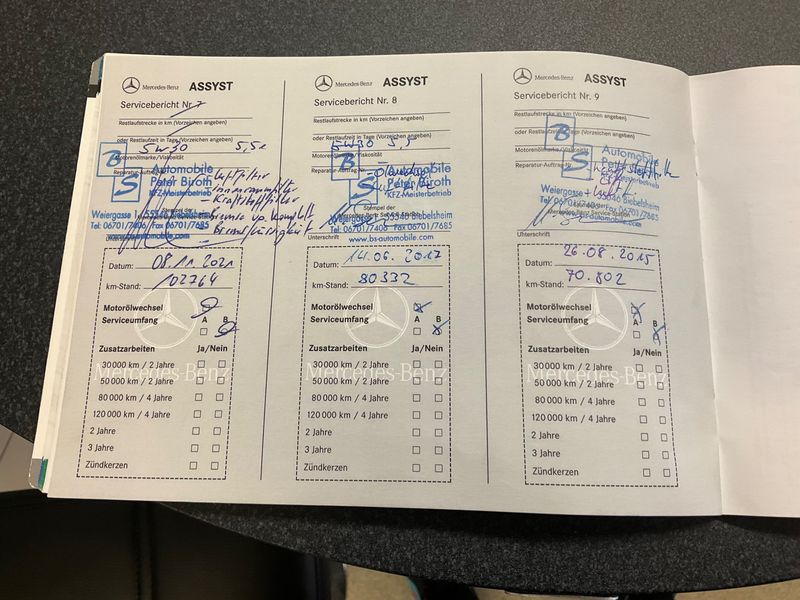 Mercedes-Benz ASSYST
Servicebericht Nr. 7
Restlaufstrecke in km (Vorzeichen angeben)
oder Restlaufzeit in Tage (Vorzeichen angeben)
5W30 5,5l
Motorenölmarke/Viskosität
Reparatur-Auftrag-Nr.
BS Automobile
Peter Biroth
KFZ-Meisterbetrieb
- Luftfilter
- Innenraumfilter
- Kraftstofffilter
- Bremse komplett
- Bremsflüssigkeit
Weiergasse 1 55546 Biebelsheim
Tel: 06701/7406 Fax 06701/7685
www.bs-automobile.com
Datum: 08.11.2021
km-Stand: 102764
Motorölwechsel
Serviceumfang A B
Zusatzarbeiten Ja/Nein
30 000 km / 2 Jahre
50 000 km / 2 Jahre
80 000 km / 4 Jahre
120 000 km / 4 Jahre
2 Jahre
3 Jahre
Zündkerzen
Mercedes-Benz
Mercedes-Benz ASSYST
Servicebericht Nr. 8
Restlaufstrecke in km (Vorzeichen angeben)
oder Restlaufzeit in Tage (Vorzeichen angeben)
5W30 5,5
Motorenölmarke/Viskosität
Reparatur-Auftrag-Nr.
BS Automobile
Peter Biroth
KFZ-Meisterbetrieb
Stempel der
Mercedes-Benz Service-Station
Weiergasse 1 55546 Biebelsheim
Tel: 06701/7406 Fax 06701/7685
www.bs-automobile.com
Unterschrift
Datum: 14.06.2017
km-Stand: 80332
Motorölwechsel
Serviceumfang A B
Zusatzarbeiten Ja/Nein
30 000 km / 2 Jahre
50 000 km / 2 Jahre
80 000 km / 4 Jahre
120 000 km / 4 Jahre
2 Jahre
3 Jahre
Zündkerzen
Mercedes-Benz
Mercedes-Benz ASSYST
Servicebericht Nr. 9
Restlaufstrecke in km (Vorzeichen angeben)
oder Restlaufzeit in Tage (Vorzeichen angeben)
Motorenölmarke/Viskosität
Reparatur-Auftrag-Nr.
BS Automobile
Peter Biroth
KFZ-Meisterbetrieb
+ Luft
55546 Biebelsheim
Tel: 06701/7406 Fax 06701/7685
Mercedes-Benz Service-Station
Unterschrift
Datum: 26.08.2015
km-Stand: 70.802
Motorölwechsel
Serviceumfang A B
Zusatzarbeiten Ja/Nein
30 000 km / 2 Jahre
50 000 km / 2 Jahre
80 000 km / 4 Jahre
120 000 km / 4 Jahre
2 Jahre
3 Jahre
Zündkerzen
Mercedes-Benz